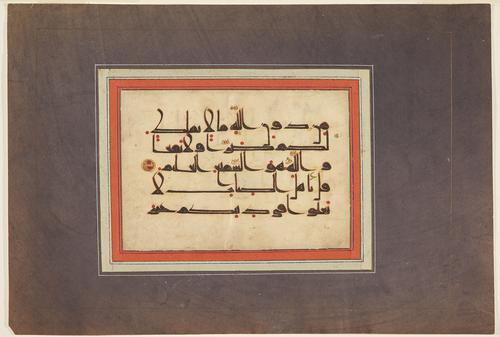 من دون الله ما لا يملك
لكم ضرا ولا نفعا
والله هو السميع العليم
قل يأهل الكتب لا
تغلوا في دينكم غير